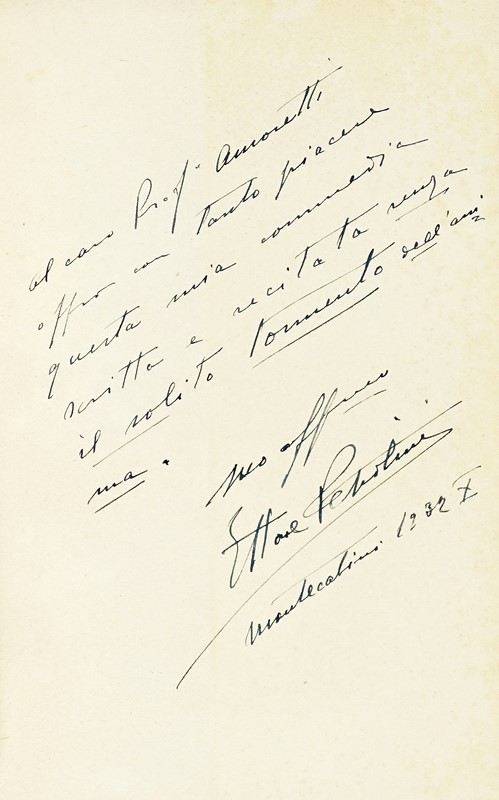 al caro Prof. Amoretti
offro con tanto piacere
questa mia commedia
scritta e recitata senza
il solito tormento dell'ani=
ma.
suo affmo
Ettore Petrolini
Montecatini 1932 X